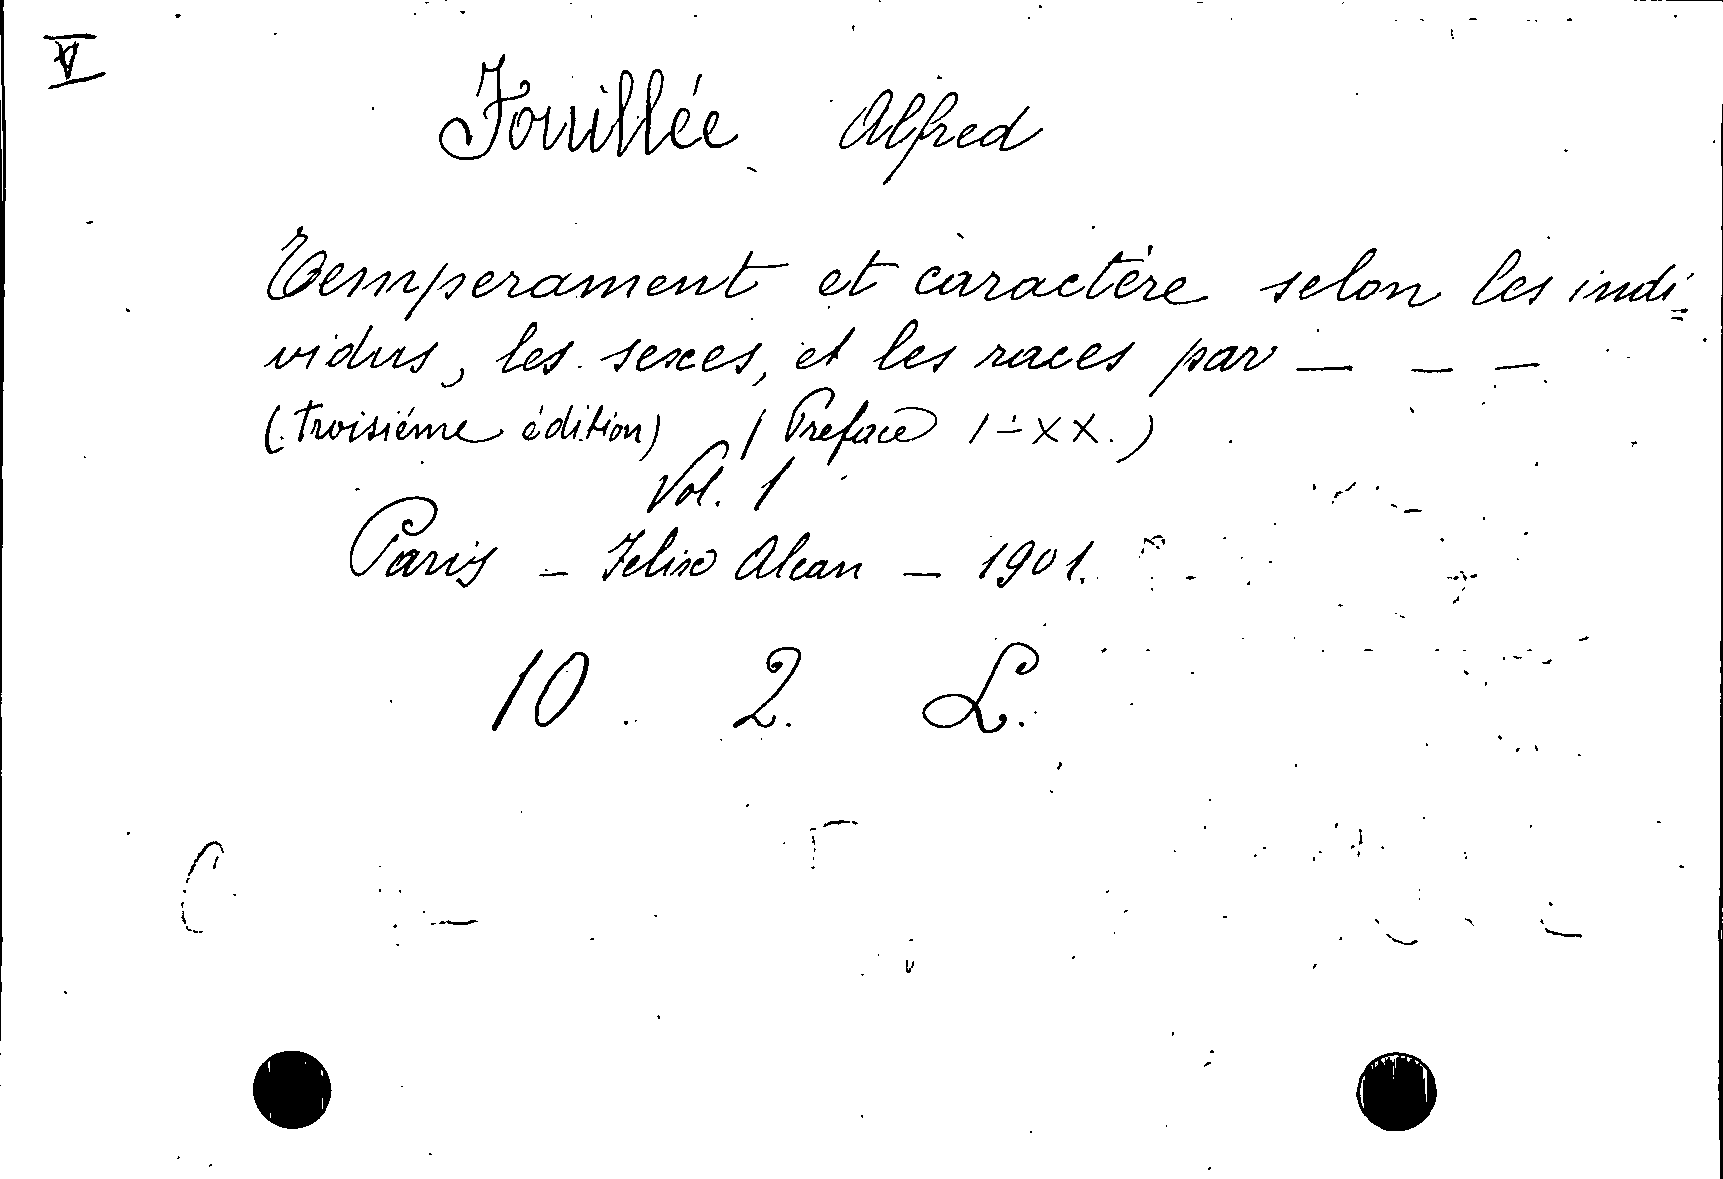 V
Fouillée Alfred
Temperament et caractère selon les indi=
vidus, les sexes, et les races par — — —
(Troisiéme édition) (Preface I-XX.)
Vol. 1
Paris - Felix Alcan - 1901.
10 2. L.